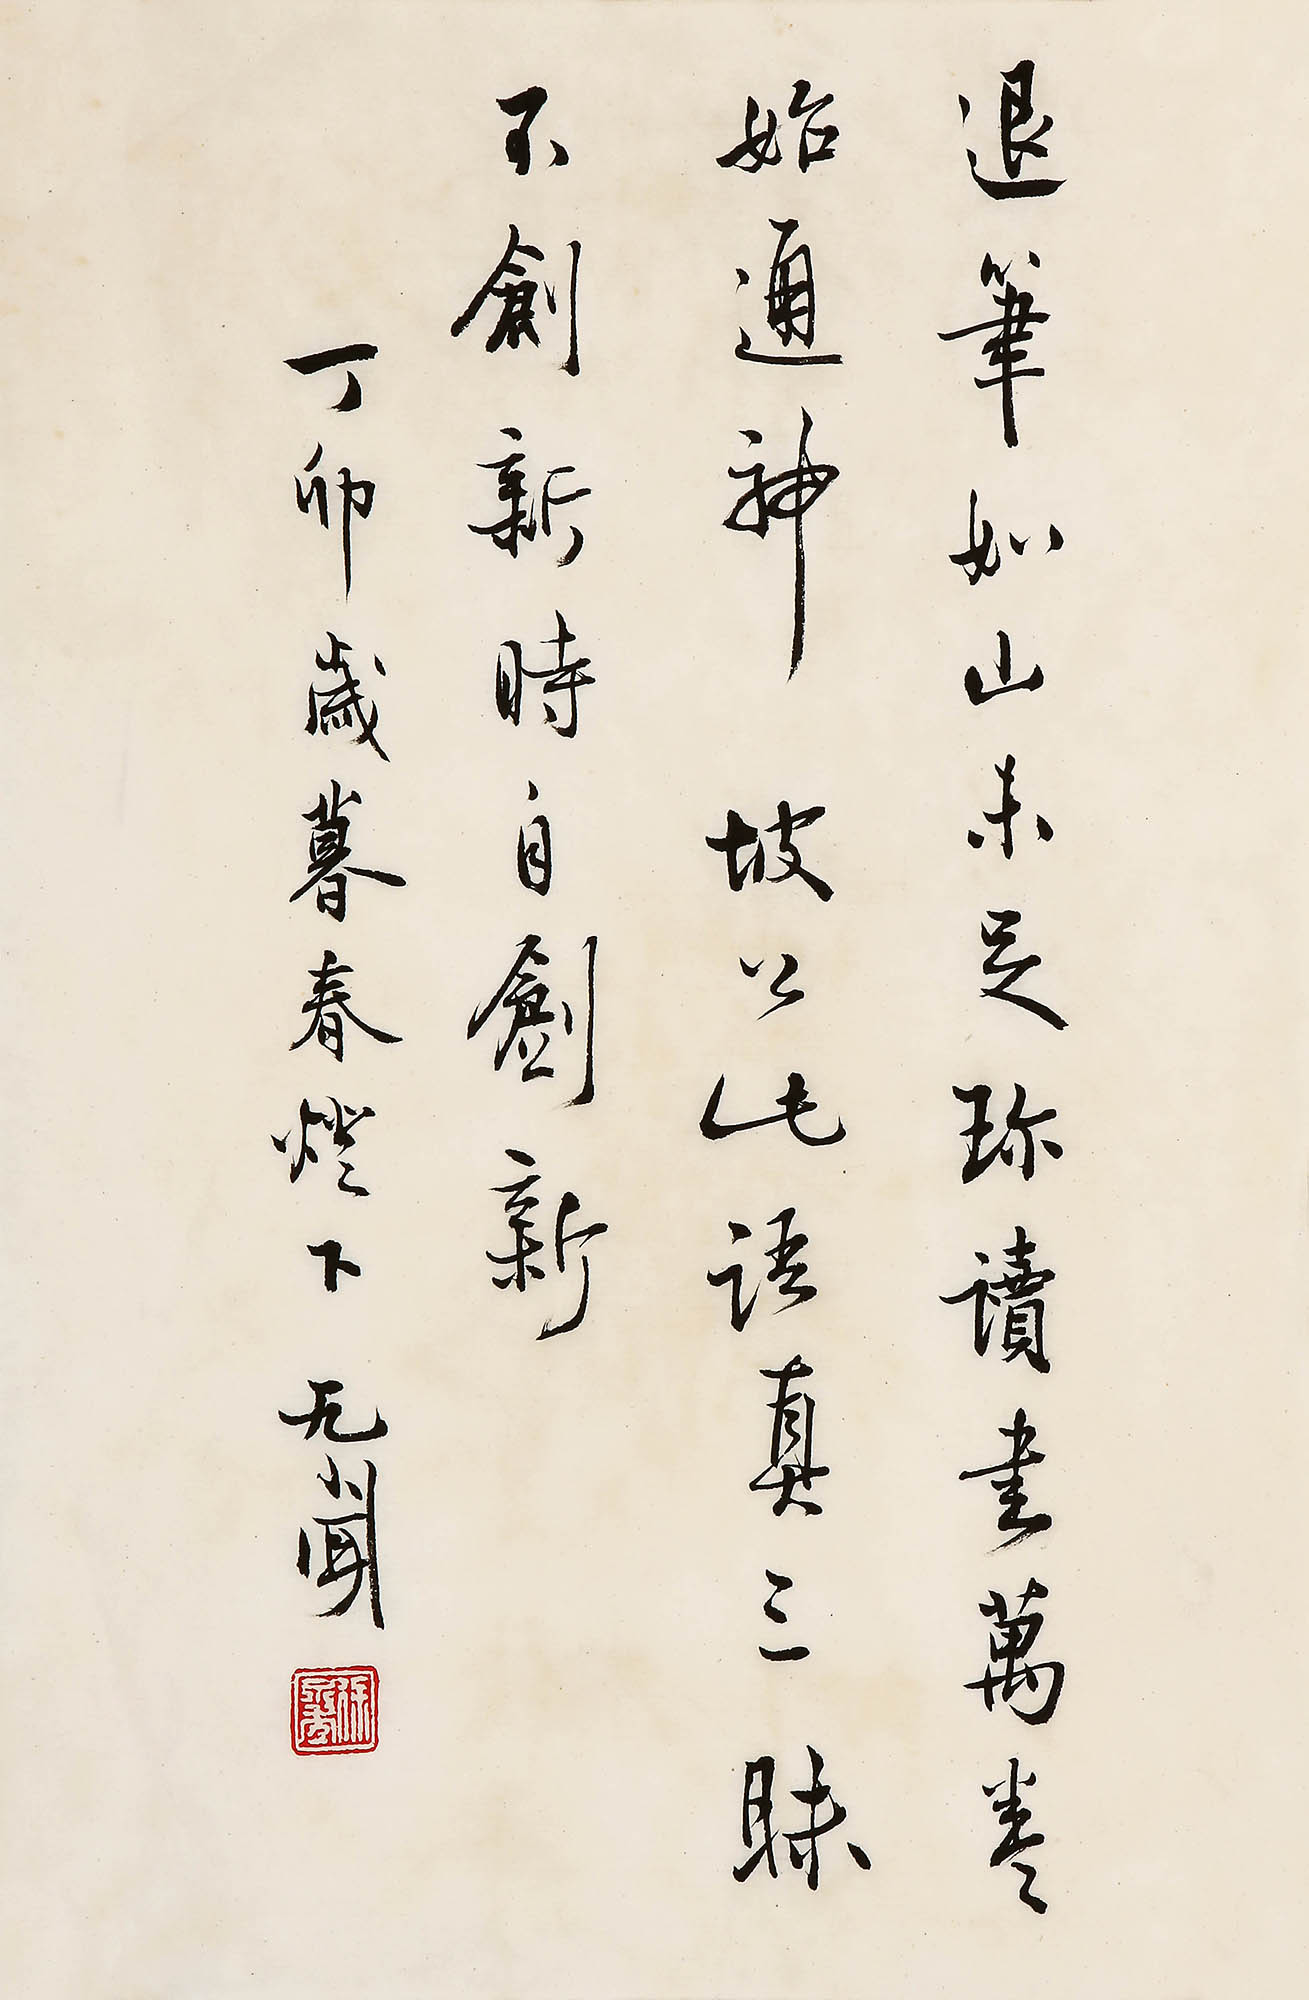 退筆如山未足珍讀書萬卷
始通神 坡公此語真三昧
不創新時自創新
丁卯歲暮春燈下 无聞